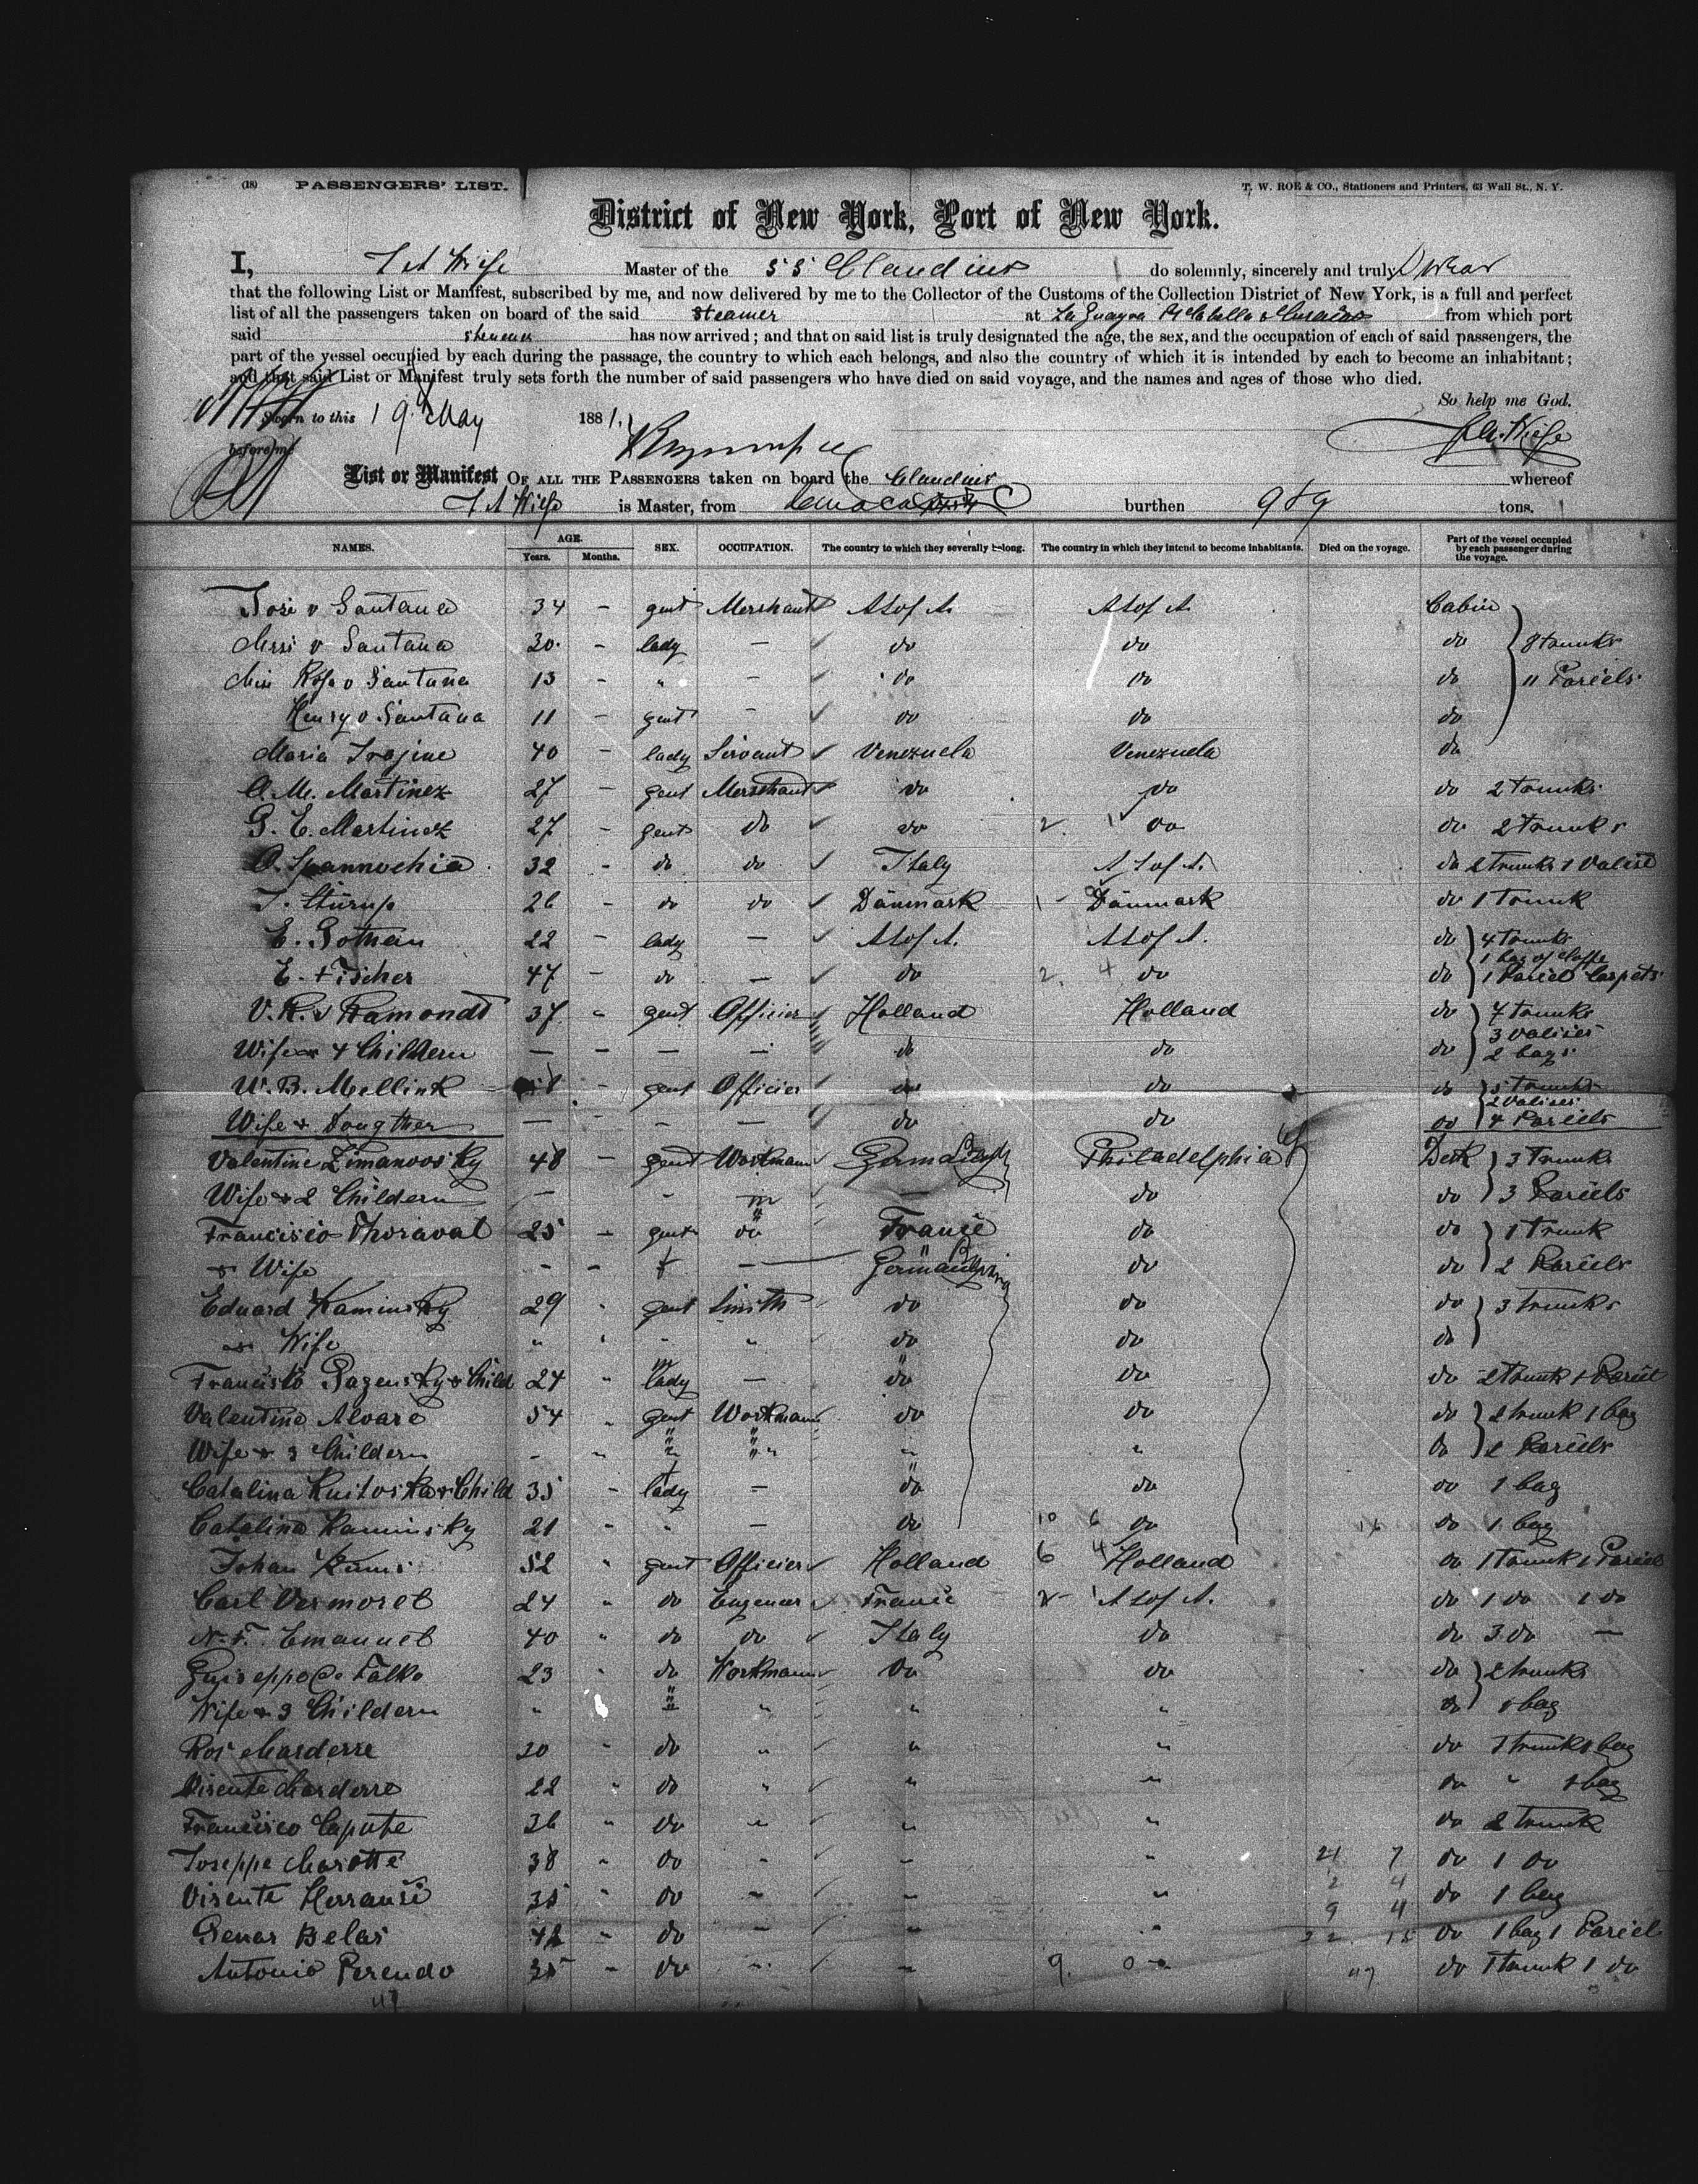 (18) PASSENGERS' LIST. T. W. ROE & CO., Stationers and Printers, 63 Wall St., N. Y.
District of New York, Port of New York.
I, Master of the SS Claudius do solemnly, sincerely and truly swear
that the following List or Manifest, subscribed by me, and now delivered by me to the Collector of the Customs of the Collection District of New York, is a full and perfect
list of all the passengers taken on board of the said steamer at La Guayra from which port
said steamer has now arrived; and that on said list is truly designated the age, the sex, and the occupation of each of said passengers, the
part of the vessel occupied by each during the passage, the country to which each belongs, and also the country of which it is intended by each to become an inhabitant;
and that said List or Manifest truly sets forth the number of said passengers who have died on said voyage, and the names and ages of those who died.
So help me God.
Sworn to this 19 May 1881.
before me
List or Manifest OF ALL THE PASSENGERS taken on board the Claudius whereof
is Master, from burthen 989 tons.
NAMES. AGE. Years. Months. SEX. OCCUPATION. The country to which they severally belong. The country in which they intend to become inhabitants. Died on the voyage. Part of the vessel occupied by each passenger during the voyage.
José v Santana 34 - gent Merchant U S of A. U S of A. Cabin
v Santana 30 - lady - do do do 8 trunks
Miss Rosa v Santana 13 - " - do do do 11 Parcels
Henry v Santana 11 - gent - do do do
Maria 40 - lady Servant Venezuela Venezuela do
A. M. Martinez 27 - gent Merschant do do do 2 trunks
G. E. Martinez 27 - gent do do 2 1 do do 2 trunks
A. Spannochia 32 - do do Italy U S of A. do 2 trunks 1 Valise
J. Stürup 26 - do do Dänmark 1 - Dänmark do 1 trunk
E. Gothan 22 - lady - U S of A. U S of A. do 4 trunks
E. Fischer 47 - do - do 2. 4 do do 1 Parcel Carpets
V. R. v Ramondt 37 - gent Officier Holland Holland do 7 trunks
3 valises
Wife & 4 Childern - - - - do do do 2 bags
W. B. Mellink - gent Officier do do do 5 trunks
2 Valises
Wife & Dougther - - - do do do 4 Parcels
Valentine Zimanoosky 48 - gent Workmann Philadelphia Deck 3 Trunks
Wife & 2 Childern - - m - do do 3 Parcels
Francisco Thoraval 25 - gent do France do do 1 trunk
& Wife - - f - German do do 2 Parcels
Eduard Kaminsky 29 - gent Smith do do do 3 trunks
& Wife " " " " do do do
Francisko Pazensky & Child 24 " lady - do do do 2 trunk 1 Parcel
Valentine Alvare 54 " gent Workmann do do do 2 trunk 1 bag
Wife & 3 Childern - " " " " " do 2 Parcels
Catalina Kuitoska & Child 35 - lady - do do do 1 bag
Catalina Kaminsky 21 " " - do 10 6 do 16 do 1 bag
Johan 52 " gent Officier Holland 6 4 Holland do 1 trunk 1 Parcel
Carl Vermoret 24 " do Engeneer France 2 - 1 U S of A. do 1 do 1 do
N. F. Emanuel 40 " do do Italy do do 3 do -
Guiseppo De Falko 23 " do Workmann do do do 2 trunks
Wife & 3 Childern " " " " " do 1 bag
Ros Marderre 20 " do " " " do 1 trunk 1 bag
Visente Marderre 22 " do " " " do " 1 bag
Francisco Capute 36 " do " " " do 2 trunk
Joseppe Marotte 38 " do " " " 21 7 do 1 do
Visente Herrausi 35 " do " " " 2 4 do 1 bag
9 4
Genar Belas 42 " do " " " 32 15 do 1 bag 1 Parcel
Antonio Perendo 35 - do " " 9. 47 do 1 trunk 1 do
47